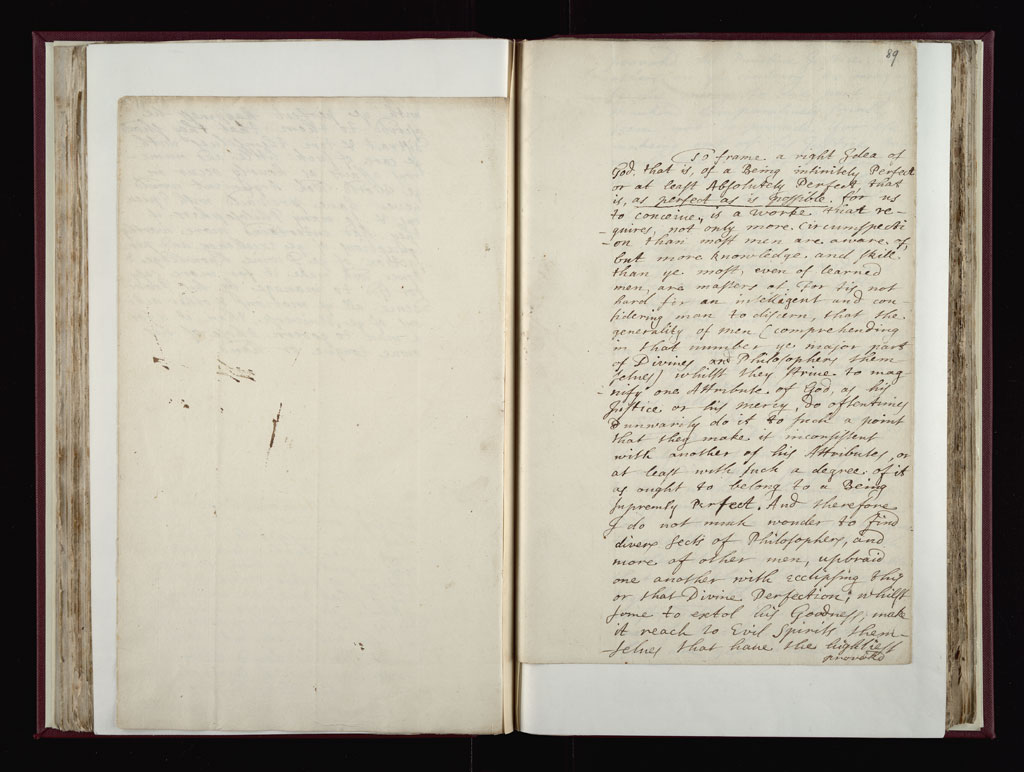 89
To frame a right Idea of
God, that is, of a Being infinitely Perfect
or at least Absolutely Perfect, that
is, as perfect as is possible for us
to conceive, is a worke that re-
quires, not only more Circumspecti-
-on than most men are aware of,
but more knowledge and skill
than ye most, even of learned
men, are masters of. For tis not
hard for an intelligent and con-
sidering man to discern, that the
generality of men (comprehending
in that number ye major part
of Divines and Philosophers them
selves) whilst they strive to mag-
-nify one Attribute of God, as his
Justice or his mercy, do oftentimes
unwarily do it to such a point
that they make it inconsistent
with another of his Attributes, or
at least with such a degree of it
as ought to belong to a Being
supremly Perfect. And therefore
I do not much wonder to find
divers sects of Philosophers, and
more of other men, upbraid
one another with ecclipsing this
or that Divine Perfection; whilst
some to extol his Goodness, make
it reach to Evil Spirits them-
-selves that have the highliest